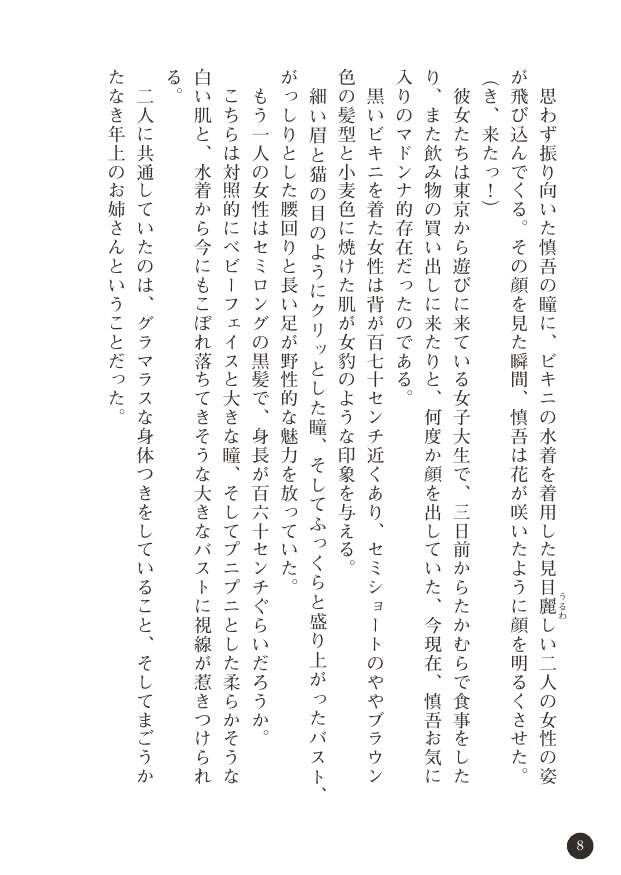 思わず振り向いた慎吾の瞳に、ビキニの水着を着用した見目麗しい二人の女性の姿
うるわ
が飛び込んでくる。その顔を見た瞬間、慎吾は花が咲いたように顔を明るくさせた。
（き、来たっ！）
彼女たちは東京から遊びに来ている女子大生で、三日前からたかむらで食事をした
り、また飲み物の買い出しに来たりと、何度か顔を出していた、今現在、慎吾お気に
入りのマドンナ的存在だったのである。
黒いビキニを着た女性は背が百七十センチ近くあり、セミショートのややブラウン
色の髪型と小麦色に焼けた肌が女豹のような印象を与える。
細い眉と猫の目のようにクリッとした瞳、そしてふっくらと盛り上がったバスト、
がっしりとした腰回りと長い足が野性的な魅力を放っていた。
もう一人の女性はセミロングの黒髪で、身長が百六十センチぐらいだろうか。
こちらは対照的にベビーフェイスと大きな瞳、そしてプニプニとした柔らかそうな
白い肌と、水着から今にもこぼれ落ちてきそうな大きなバストに視線が惹きつけられ
る。
二人に共通していたのは、グラマラスな身体つきをしていること、そしてまごうか
たなき年上のお姉さんということだった。
8